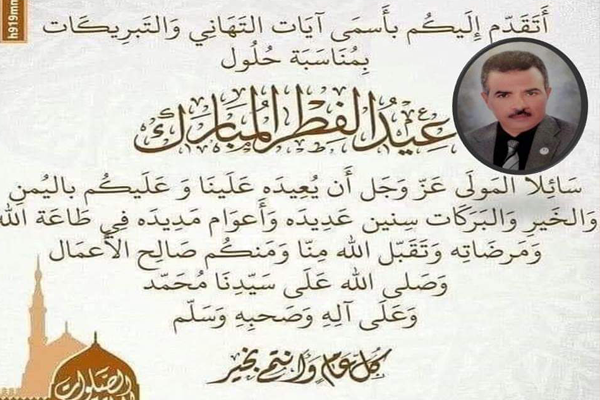 h919mn
أَتَقَدّم إِلَيكُم بأَسمَى آيَات التَهَاني وَالتَبرِيكَات
بِمُنَاسَبَة حُلُول
عِيدُ الفِطْرِ المُبَارَك
سَائِلاً المَولَى عَزّ وَجَل أَن يُعِيدَه عَلَينَا وَ عَلَيكُم باليُمنِ
وَالخَيرِ وَالبَرَكَات سِنِين عَدِيدَه وَأَعوَام مَدِيدَه فِي طَاعَة الله
وَمَرضَاتِه وَتَقَبّل الله مِنّا وَمَنكُم صَالِح الأَعمَال
وَصَلى الله عَلَى سَيّدِنَا مُحَمّد
وَعَلَى آلِهِ وَصَحبِهِ وَسَلّم
كل عام وانتم بخير
الصلوات